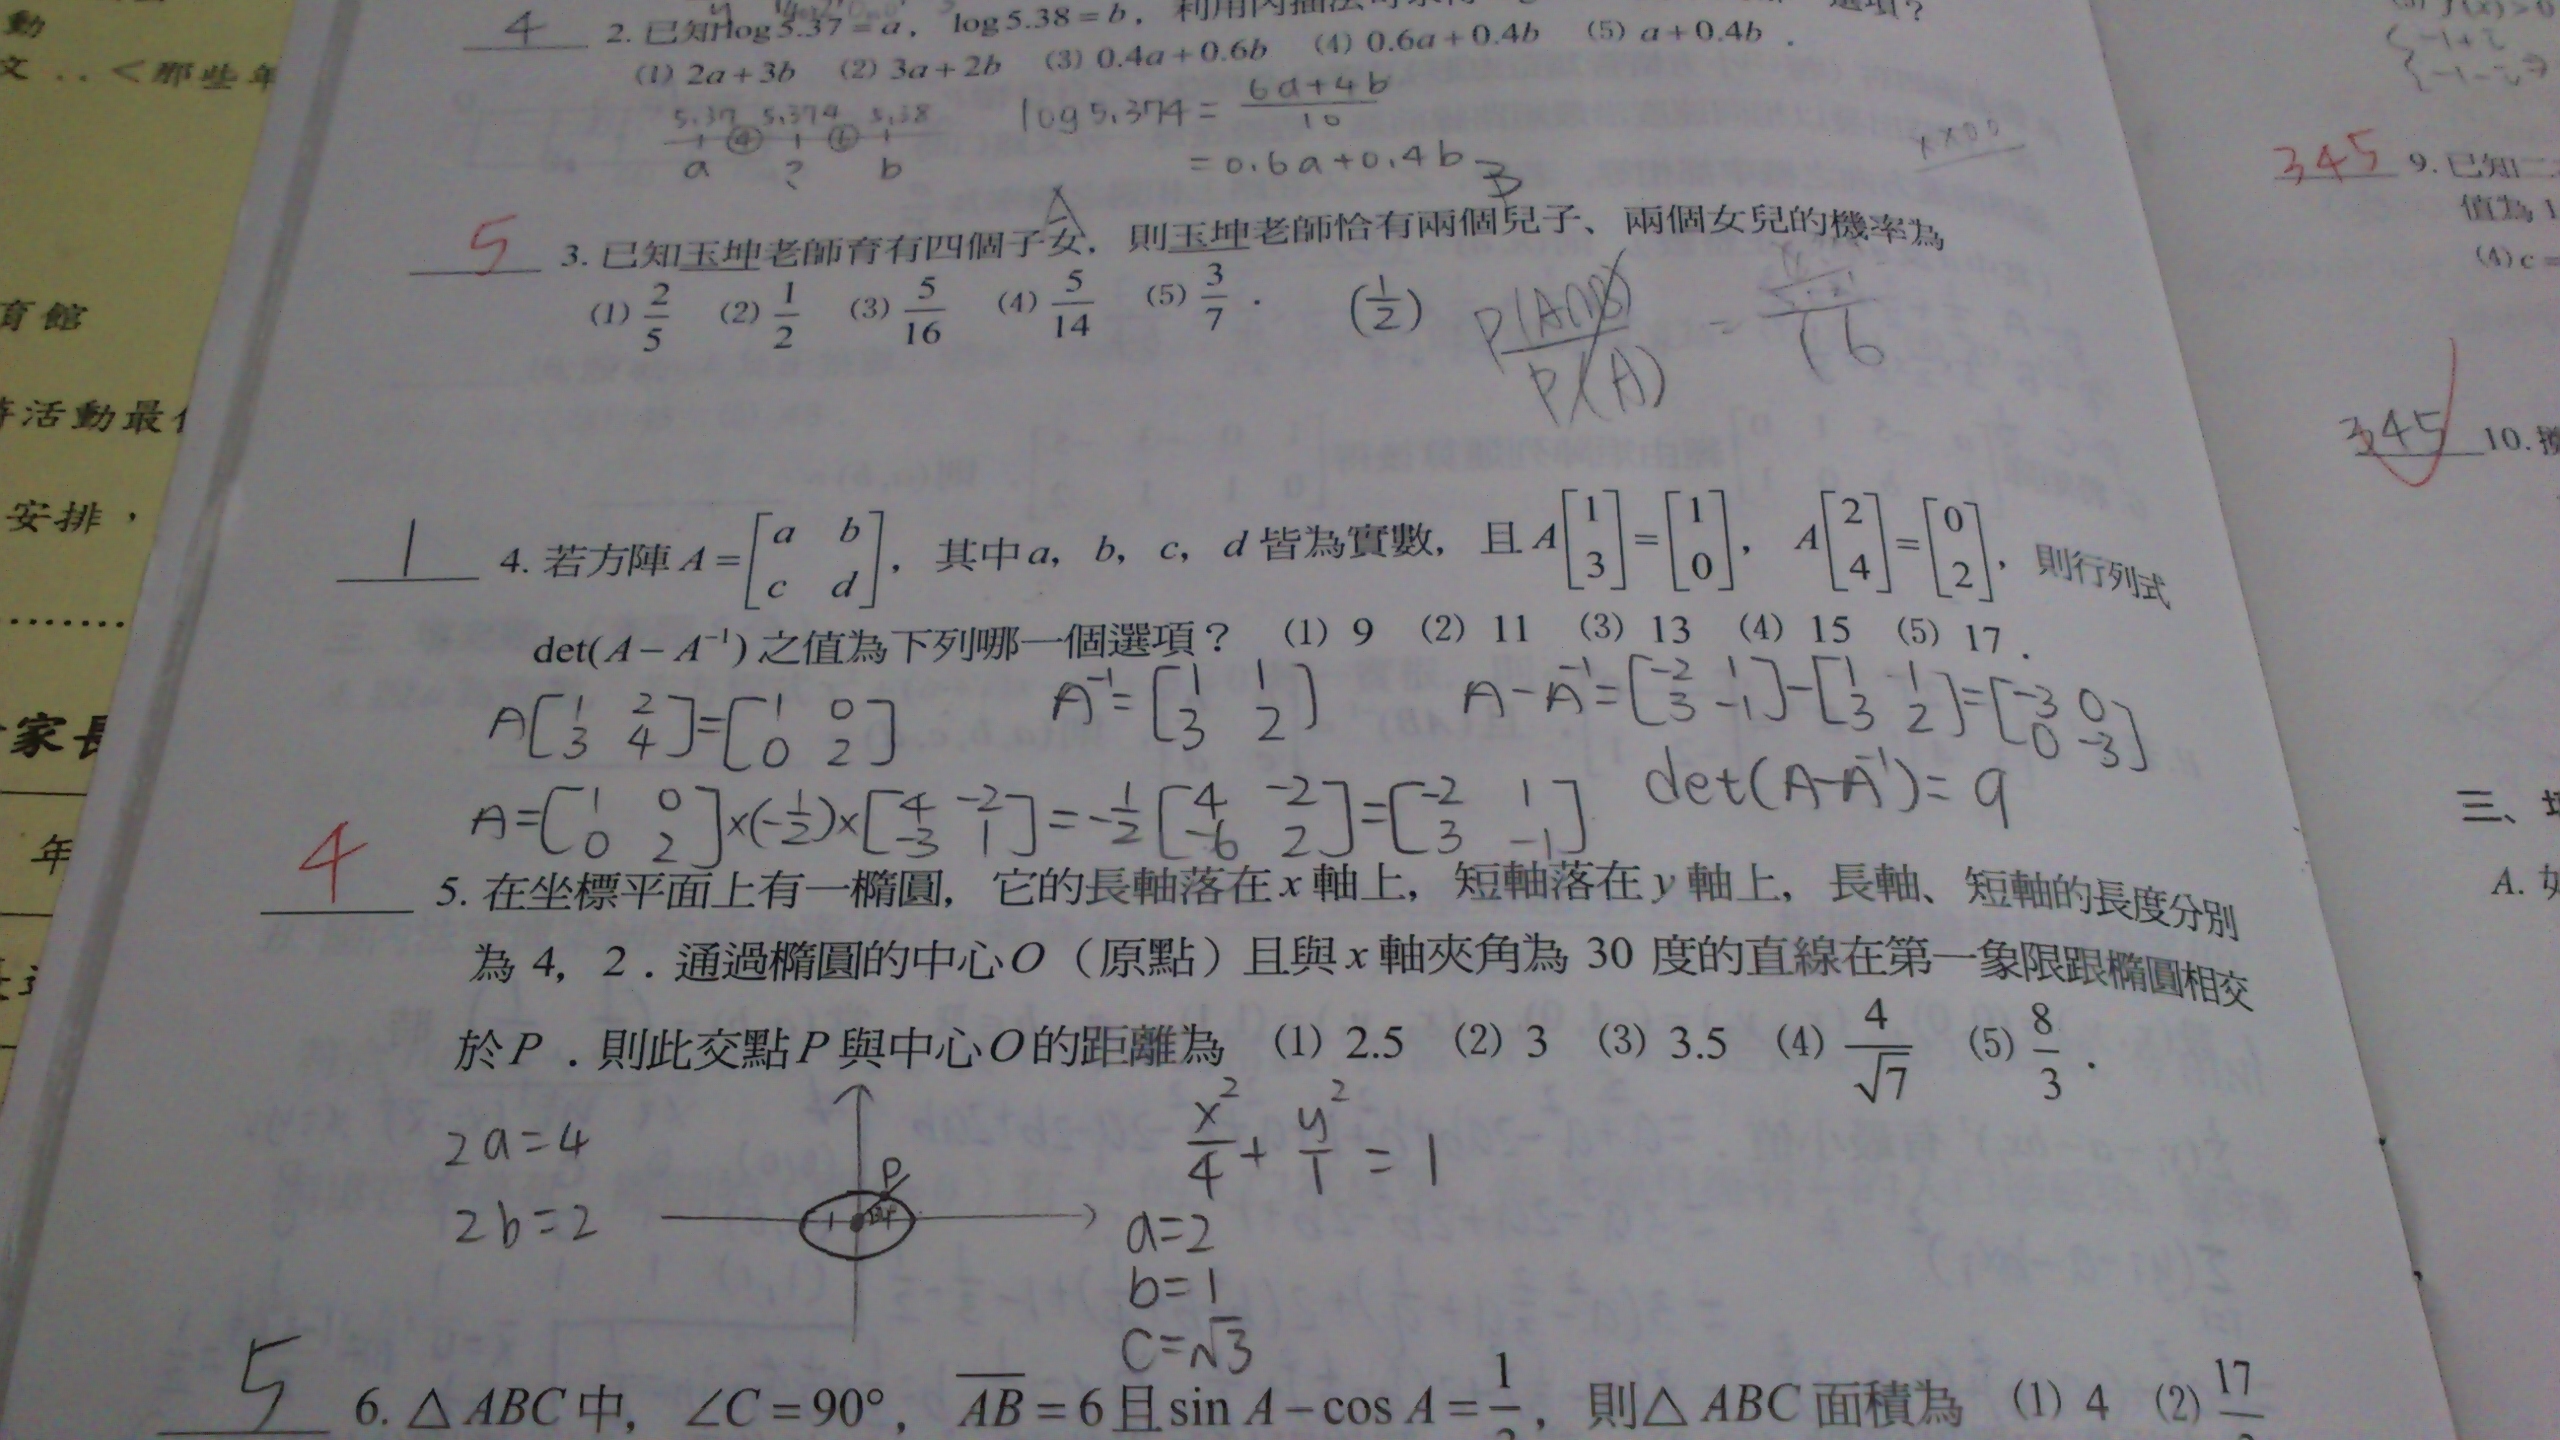 動
文‥＜那些年
育館
活動最
安排，
家長
年
4 2. 已知log5.37=a， log5.38=b，
(1) 2a+3b (2) 3a+2b (3) 0.4a+0.6b (4) 0.6a+0.4b (5) a+0.4b .
5.37 5.374 5.38
a ? b
log5.374 = 6a+4b/10
= 0.6a+0.4b
××00
3
5 3. 已知玉坤老師育有四個子女，則玉坤老師恰有兩個兒子、兩個女兒的機率為
(1) 2/5 (2) 1/2 (3) 5/16 (4) 5/14 (5) 3/7 .
(1/2) P(A∩B)/P(A) = /16
1 4. 若方陣 A=[a b; c d]，其中a，b，c，d 皆為實數，且 A[1; 3]=[1; 0]，A[2; 4]=[0; 2]，則行列式
det(A−A⁻¹) 之值為下列哪一個選項？ (1) 9 (2) 11 (3) 13 (4) 15 (5) 17 .
A[1 2; 3 4]=[1 0; 0 2] A⁻¹=[1 1; 3 2] A−A⁻¹=[-2 1; 3 -1]−[1 1; 3 2]=[-3 0; 0 -3]
A=[1 0; 0 2]×(-1/2)×[4 -2; -3 1]=-1/2[4 -2; -6 2]=[-2 1; 3 -1] det(A-A⁻¹)=9
4 5. 在坐標平面上有一橢圓，它的長軸落在x軸上，短軸落在y軸上，長軸、短軸的長度分別
為 4，2．通過橢圓的中心O（原點）且與x軸夾角為 30 度的直線在第一象限跟橢圓相交
於P．則此交點P與中心O的距離為 (1) 2.5 (2) 3 (3) 3.5 (4) 4/√7 (5) 8/3 .
2a=4
2b=2
P
x²/4 + y²/1 = 1
a=2
b=1
c=√3
5 6. △ABC中，∠C=90°，AB=6且sin A−cos A=1/，則△ABC 面積為 (1) 4 (2) 17/
345 9. 已知二
值為 1
(4) c=
345 10.
三、
A.